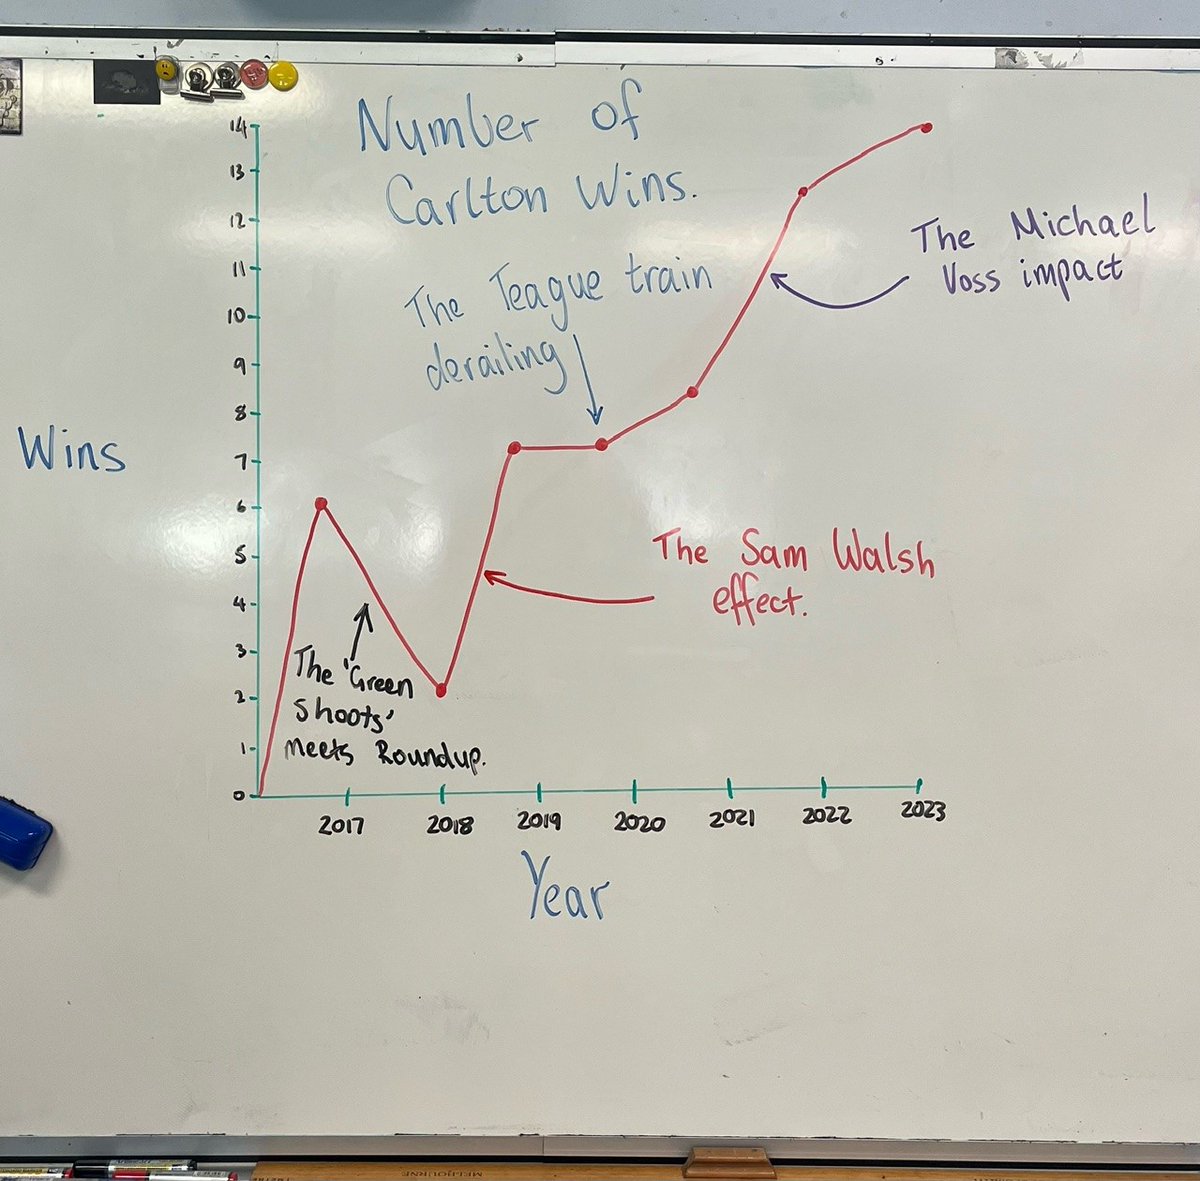 Number of
Carlton Wins.
The Teague train
derailing
The Michael
Voss impact
The Sam Walsh
effect.
The 'Green
Shoots'
meets Roundup.
Wins
14
13
12
11
10
9
8
7
6
5
4
3
2
1
0
2017 2018 2019 2020 2021 2022 2023
Year
MELBOURNE